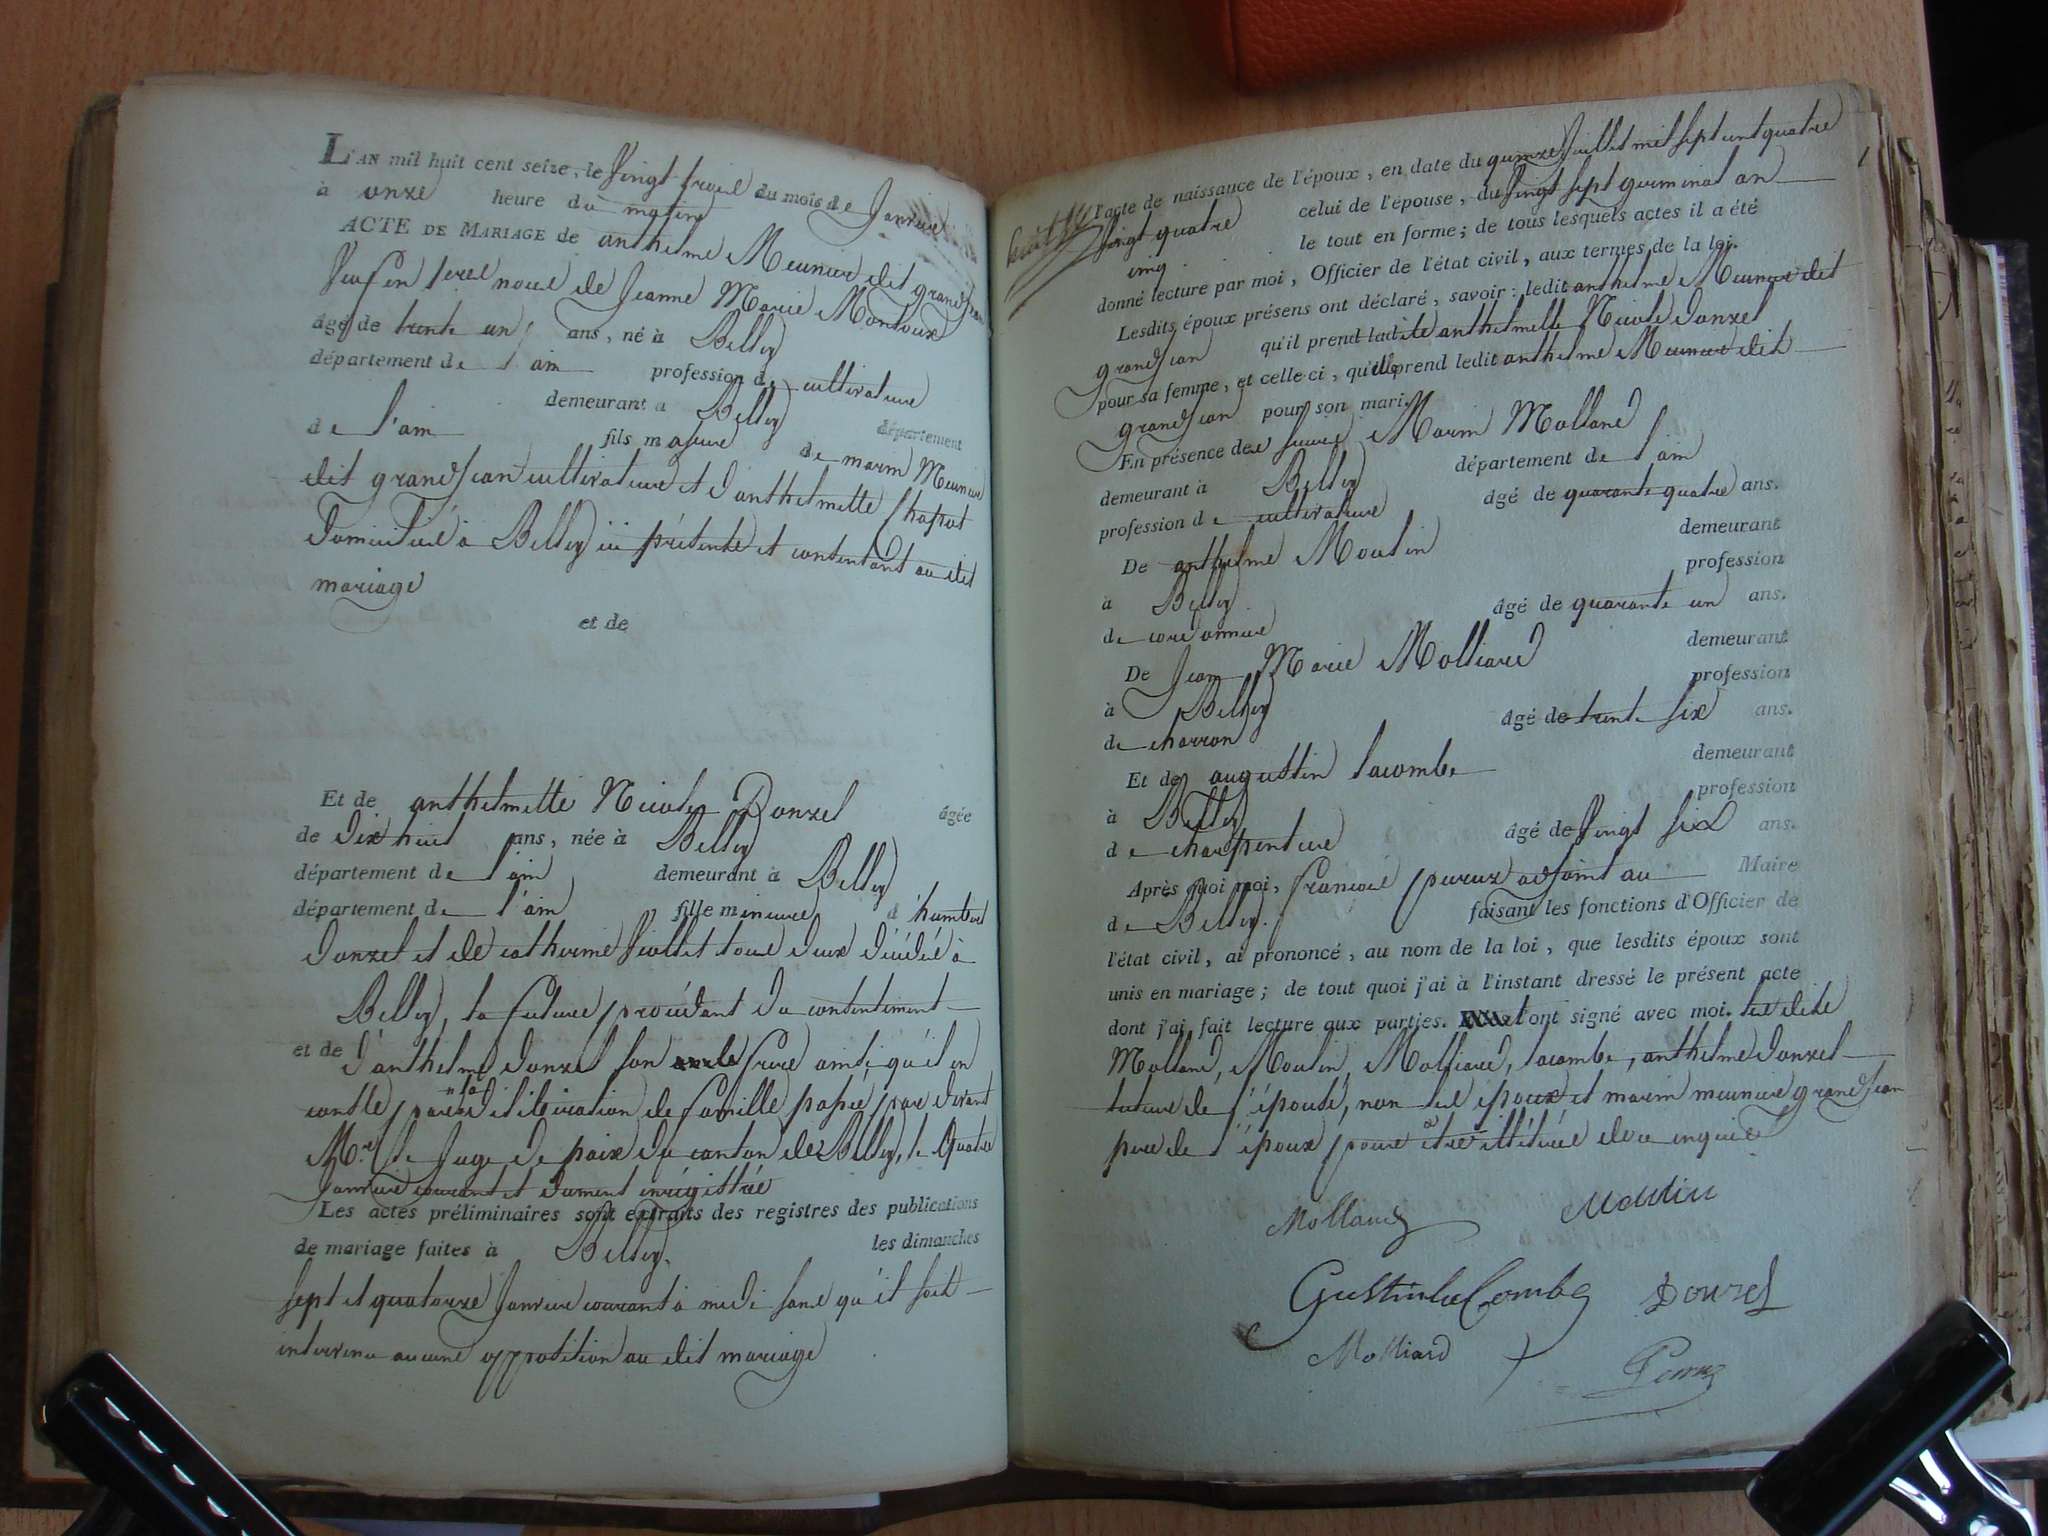 L'AN mil huit cent seize, le vingt trois du mois de Janvier
à onze heure du matin
ACTE DE MARIAGE de anthelme Meunier dit grandjean
veuf en 1eres noces de Jeanne Marie Montoux
âgé de trente un ans, né à Belley
département de l'ain profession de cultivateur
demeurant à Belley département
de l'ain fils majeur de marin Meunier
dit grandjean cultivateur et d'anthelmette Chapot
domiciliés à Belley ici présents et consentants au dit
mariage
et de
Et de anthelmette Nicole Donzel âgée
de dix huit ans, née à Belley
département de l'ain demeurant à Belley
département de l'ain fille mineure d'humbert
donzel et de catherine Juillet tous deux décédés à
Belley, la future procédant du consentement
et de d'anthelme donzel son frere ainsi qu'il en
conste par la délibération de famille passée par devant
Mr. le Juge de paix du canton de Belley, le quatre
Janvier courant et dument enrégistrée
Les actes préliminaires sont extraits des registres des publications
de mariage faites à Belley. les dimanches
sept et quatorze Janvier courant à midi sans qu'il soit
intervenu aucune opposition au dit mariage
l'acte de naissance de l'époux, en date du quinze Juillet mil sept cent quatre
vingt quatre celui de l'épouse, du vingt sept germinal an
cinq le tout en forme; de tous lesquels actes il a été
donné lecture par moi, Officier de l'état civil, aux termes de la loi.
Lesdits époux présens ont déclaré, savoir: ledit anthelme Meunier dit
grandjean qu'il prend ladite anthelmette Nicole donzel
pour sa femme, et celle ci, qu'elle prend ledit anthelme Meunier dit
grandjean pour son mari.
En présence des sieurs Marin Molland
demeurant à Belley département de l'ain
profession de cultivateur âgé de quarante quatre ans.
De anthelme Moulin demeurant
à Belley profession
de cordonnier âgé de quarante un ans.
De Jean Marie Molliard demeurant
à Belley profession
de charron âgé de trente six ans.
Et de augustin lacombe demeurant
à Belley profession
de charpentier âgé de vingt six ans.
Après quoi moi, françois peruz adjoint au Maire
de Belley. faisant les fonctions d'Officier de
l'état civil, ai prononcé, au nom de la loi, que lesdits époux sont
unis en mariage; de tout quoi j'ai à l'instant dressé le présent acte
dont j'ai fait lecture aux parties. et ont signé avec moi. les dits
Molland, Moulin, Molliard, lacombe, anthelme donzel
tuteur de l'épouse, non les époux et marin meunier grandjean
pere de l'époux pour être illitérés de ce enquis
Molland Moulin
Gustin la Combe Donzel
Molliard Peruz